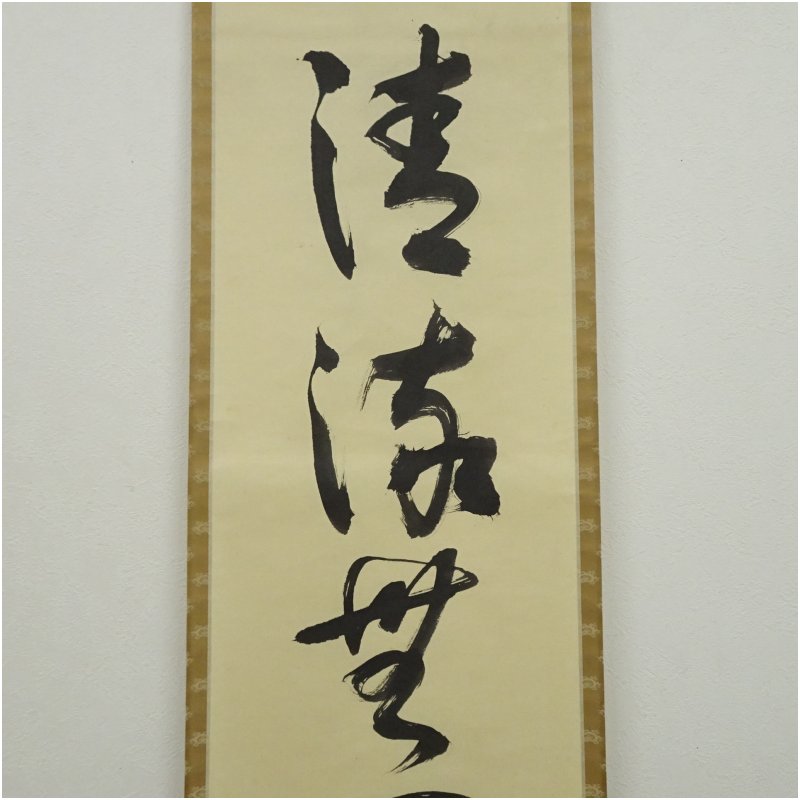 清流無